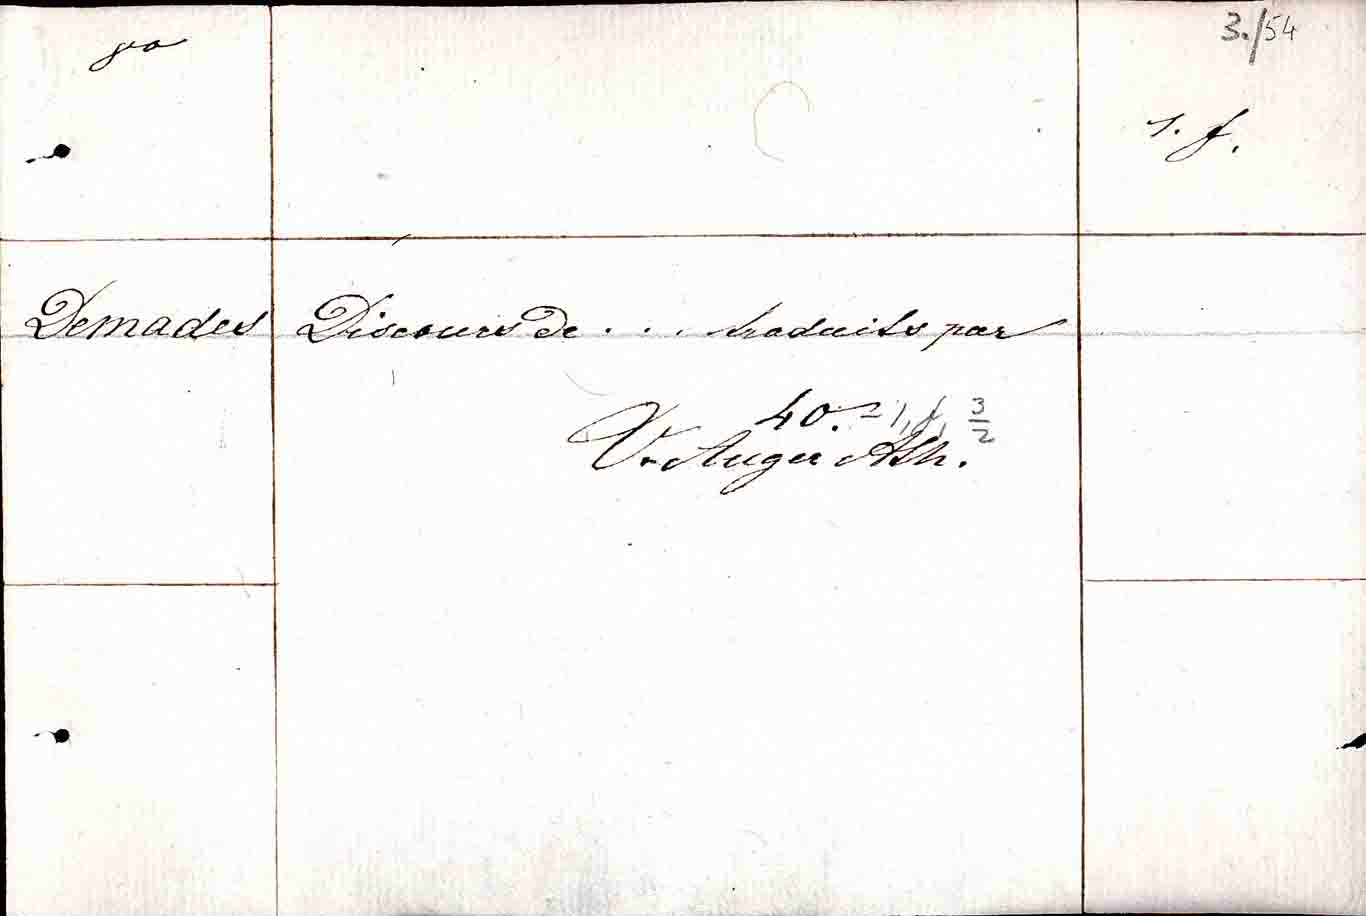 3./54
1. f.
Demades Discours de . . . traduits par
40. = 1, f, 3/2
V. Auger Ath.